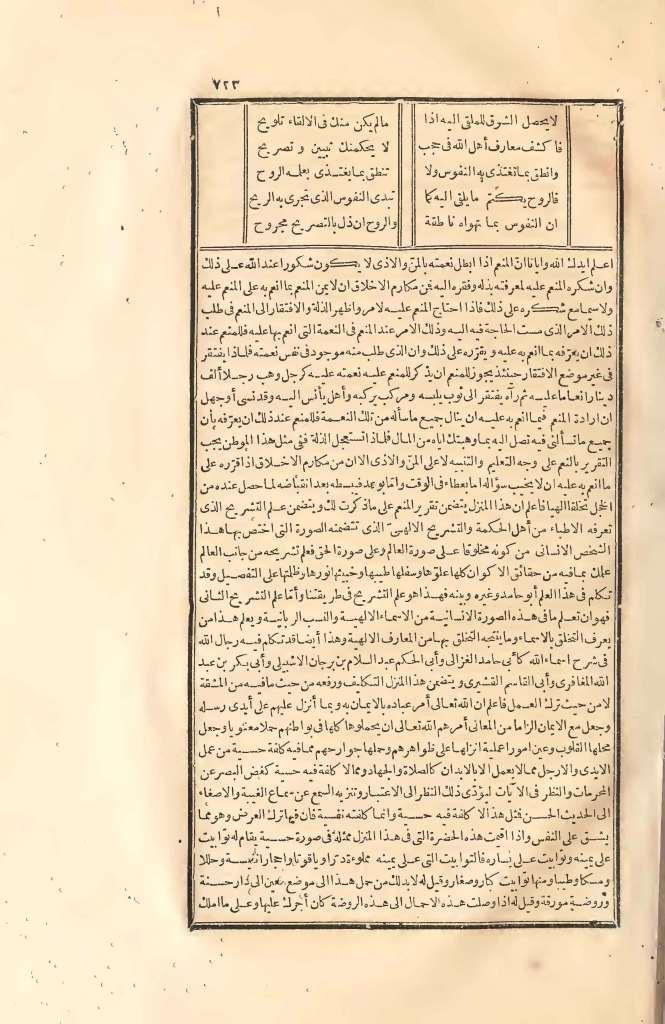 ٧٢٣
لا يحصل الشوق للملقى اليه اذا مالم يكن منك فى الالقاء تلويح
فاكشف معارف أهل الله فى حجب لا يحكمنك تبيين وتصريح
وانطق بما تغتذى به النفوس ولا تنطق بما يغتذى بعلمه الروح
فالروح يكتم ما يلقى اليه كما تبدى النفوس الذى تجرى به الريح
ان النفوس بما تهواه ناطقة والروح ان ذل بالتصريح مجروح
اعلم ايدك الله وايانا ان المنعم اذا ابطل نعمته بالمن والاذى لا يكون شكورا عند الله على ذلك
وان شكره المنعم عليه لمعرفته بذله وفقره اليه فمن مكارم الاخلاق ان لا يمن المنعم بما انعم به على المنعم عليه
ولا سيما مع شكره على ذلك فاذا احتاج المنعم عليه لامر واظهر الذلة والافتقار الى المنعم فى طلب
ذلك الامر الذى مست الحاجة فيه اليه وذلك الامر عند المنعم فى النعمة التى انعم بها عليه فللمنعم عند
ذلك ان يعرّفه بما انعم به عليه ويقرّره على ذلك وان الذى طلب منه موجود فى نفس نعمته فلماذا يفتقر
فى غير موضع الافتقار حينئذ يجوز للمنعم ان يذكر للمنعم عليه نعمته عليه كرجل وهب رجلا ألف
دينار انعاما عليه ثم رآه يفتقر الى ثوب يلبسه ومركب يركبه وأهل يأنس اليه وقد نسى أو جهل
ان ارادة المنعم فيما انعم به عليه ان ينال جميع ما سأله من تلك النعمة فللمنعم عند ذلك ان يعرّفه بأن
جميع ما تسألنى فيه تصل اليه بما وهبتك اياه من المال فلماذا تستعجل الذلة ففى مثل هذا الموطن يجب
التقرير بالنعم على وجه التعليم والتنبيه لا على المن والاذى الا ان من مكارم الاخلاق اذا قرّره على
ما انعم به عليه ان لا يخيب سؤاله اما بعطاء فى الوقت واما بوعد فيبسطه بعد انقباضه لما حصل عنده من
الخجل تخلقا الهيا فاعلم ان هذا المنزل يتضمن تقرير المنعم على ما ذكرت لك ويتضمن علم التشريح الذى
تعرفه الاطباء من أهل الحكمة والتشريح الالهى الذى تتضمنه الصورة التى اختص بها هذا
الشخص الانسانى من كونه مخلوقا على صورة العالم وعلى صورة الحق فعلم تشريحه من جانب العالم
علمك بما فيه من حقائق الاكوان كلها علوّها وسفلها طيبها وخبيثها نورها وظلمتها على التفصيل وقد
تكلم فى هذا العلم أبو حامد وغيره وبينه فهذا هو علم التشريح فى طريقتنا وأما علم التشريح الثانى
فهو ان تعلم ما فى هذه الصورة الانسانية من الاسماء الالهية والنسب الربانية ويعلم هذا من
يعرف التخلق بالاسماء وما ينتجه التخلق بها من المعارف الالهية وهذا أيضا قد تكلم فيه رجال الله
فى شرح اسماء الله كأبى حامد الغزالى وأبى الحكم عبد السلام بن برجان الاشبيلى وأبى بكر بن عبد
الله المغافرى وأبى القاسم القشيرى ويتضمن هذا المنزل التكليف ورفعه من حيث ما فيه من المشقة
لا من حيث ترك العمل فاعلم ان الله تعالى أمر عباده بالايمان به وبما أنزل عليهم على أيدى رسله
وجعل مع الايمان الزاما من المعانى أمرهم الله تعالى ان يحملوها كلها فى بواطنهم حملا معنويا وجعل
محلها القلوب وعين امورا عملية انزلها على ظواهرهم وحملها جوارحهم مما فيه كلفة حسية من عمل
الايدى والارجل مما لا يعمل الا بالابدان كالصلاة والجهاد ومما لا كلفة فيه حسية كغض البصر عن
المحرمات والنظر فى الآيات ليؤدى ذلك النظر الى الاعتبار وتنزيه السمع عن سماع الغيبة والاصغاء
الى الحديث الحسن فمثل هذا لا كلفة فيه حسية وانما كلفته نفسية فان فيها ترك الغرض وهو مما
يشق على النفس واذا اقيمت هذه الحضرة التى فى هذا المنزل ممثلة فى صورة حسية يقام له توابيت
على يمينه وتوابيت على يساره فالتوابيت التى على يمينه مملوءة درا وياقوتا واحجارا نفيسة وحللا
ومسكا وطيبا ومنها توابيت كبار وصغار وقيل له لابدلك من حمل هذا الى موضع معين الى دار حسنة
وروضة مورقة وقيل له اذا وصلت هذه الاحمال الى هذه الروضة كان أجرك عليها وعلى ما املك